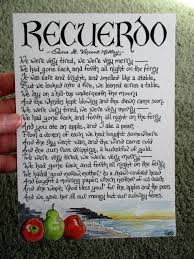 RECUERDO
~Edna St. Vincent Millay~
We were very tired, we were very merry—
We had gone back and forth all night on the ferry
It was bare and bright, and smelled like a stable,
But we looked into a fire, we leaned across a table,
We lay on a hill-top underneath the moon;
And the whistles kept blowing and the dawn came soon.
We were very tired, we were very merry—
We had gone back and forth all night on the ferry
And you ate an apple, and I ate a pear,
From a dozen of each we had bought somewhere
And the sky went wan, and the wind came cold
And the sun rose dripping, a bucketful of gold.
We were very tired, we were very merry—
We had gone back and forth all night on the ferry
We hailed "Good morrow, mother!" to a shawl-covered head
And bought a morning paper, which neither of us read
And she wept "God bless you!" for the apples and the pears
And we gave her all our money but our subway fares.